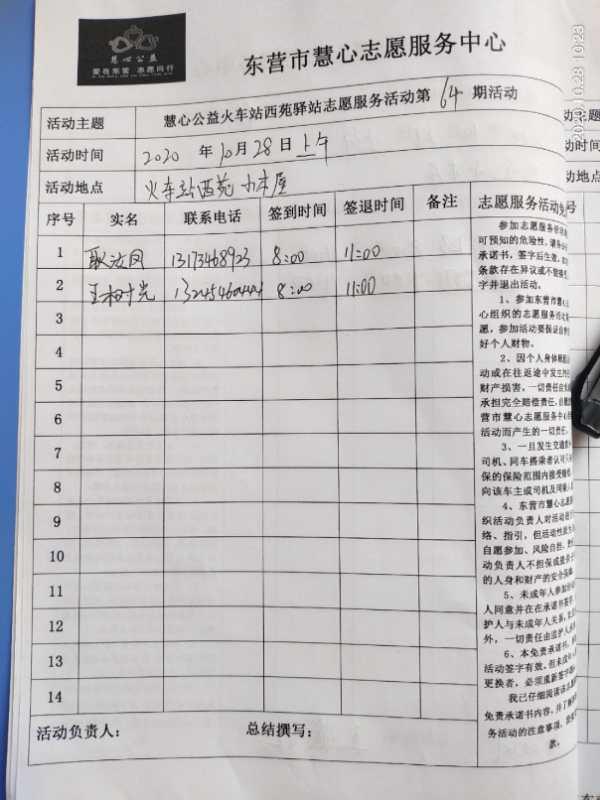 慧心公益
爱在东营 志愿同行
东营市慧心志愿服务中心
活动主题 慧心公益火车站西苑驿站志愿服务活动第64期活动
活动时间 2020年10月28日上午
活动地点 火车站西苑小木屋
序号 实名 联系电话 签到时间 签退时间 备注 志愿服务活动免
1 凤 13173468923 8:00 11:00
2 王树光 8:00 11:00
3
4
5
6
7
8
9
10
11
12
13
14
参加志愿服务
可预知的危险性,请
承诺书,签字后生效,
条款存在异议或不
字并退出活动。
1、参加东营市慧
心组织的志愿服务活动
愿,参加活动要保证自
好个人财物。
2、因个人身体
动或在往返途中发生
财产损害,一切责任由
承担完全赔偿责任,
营市慧心志愿服务中心
活动而产生的一切责任。
3、一旦发生交通
司机、同车搭乘者认可
保的保险范围内接受赔
向该车主或司机及同乘人
4、东营市慧心志愿
织活动负责人对活动进
络、指引,但运动性
自愿参加、风险自担,
动负责人不担保或
的人身和财产的安全
5、未成年人参加
人同意并在在承诺书签
护人与未成年人关系,
外,一切责任由监护人
6、本免责承诺书,
活动签字有效,但未成年
更换者,必须重新签字
我已仔细阅读该
免责承诺书内容,并了解
务活动的注意事项,
款。
活动负责人: 总结撰写:
2020.10.28 10:23
号
动主题
动时间
动地点